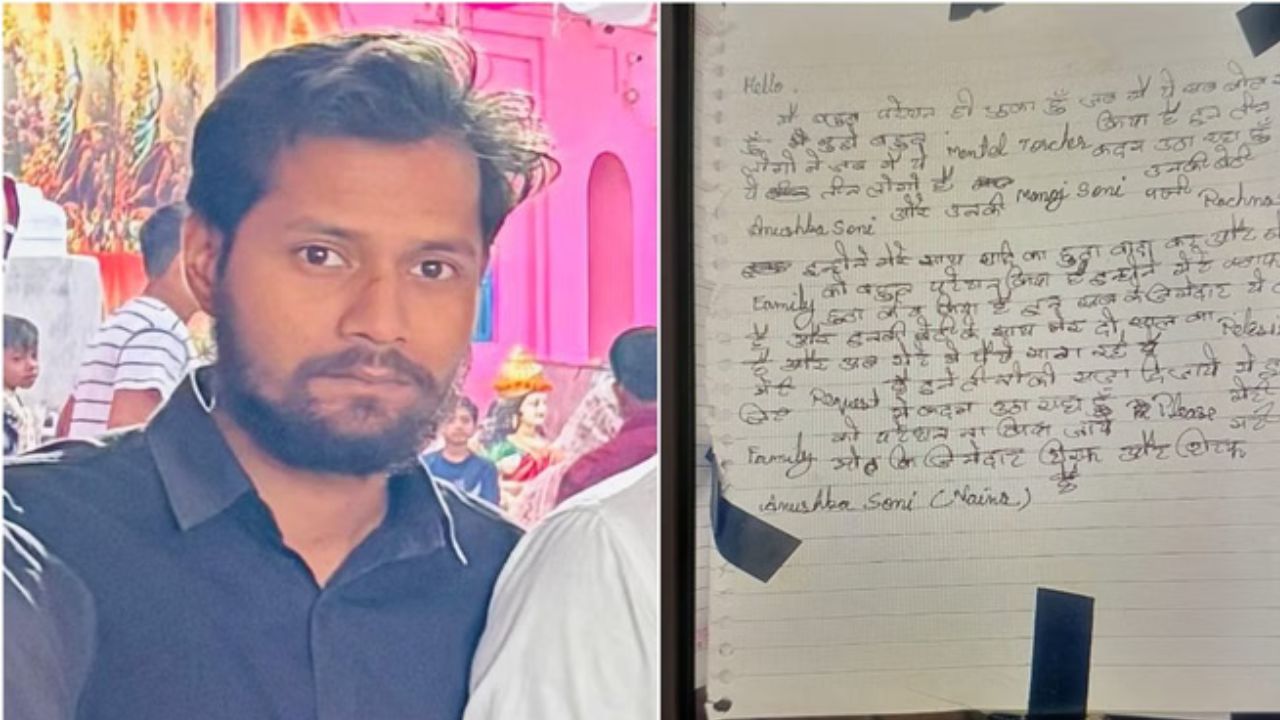 Hello.
मै बहुत परेशान हो चुका हूँ जब मै ये सब बोल
हूँ मुझे बहुत Mental Torcher किया है इन तीन
लोगो ने जब मै ये कदम उठा रहा हूँ
ये तीन लोगो है Manoj Soni पत्नी उनकी बेटी
Anushka Soni और उनकी Rachna
इन्होने मेरे साथ शादि का झुठा वादा कर और
Family को बहुत परेशान किया है इन्होने मेरे
झुठा किया है इन सब के जिमेदार ये
है और इनकी बेटी के साथ मेरा दो साल का Relesh
है और अब मेरे से पैसे मांग रहे है
मेरी Request है इन तीनो को सजा दिलाये
ये कदम उठा रहा हूँ Please मेरी
Family को परेशान ना किया जाये
मौत कि जिमेदार सिरफ और सिरफ
Anushka Soni (Naina) है